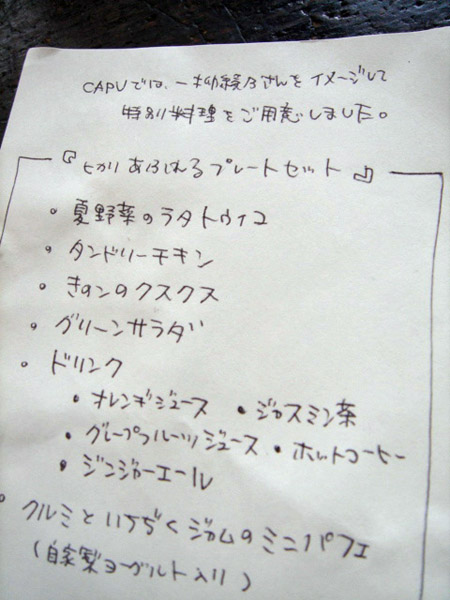 CAPUでは、一柳綾乃さんをイメージして
特別料理をご用意しました。
『ヒカリあふれるプレートセット』
・夏野菜のラタトゥイユ
・タンドリーチキン
・きのこのクスクス
・グリーンサラダ
・ドリンク
・オレンジジュース ・ジャスミン茶
・グレープフルーツジュース ・ホットコーヒー
・ジンジャーエール
・クルミといちぢくジャムのミニパフェ
(自家製ヨーグルト入り)